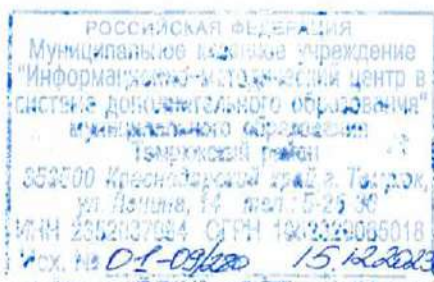 РОССИЙСКАЯ ФЕДЕРАЦИЯ
Муниципальное казенное учреждение
"Информационно-методический центр в
системе дополнительного образования"
муниципального образования
Темрюкский район
353500 Краснодарский край г. Темрюк,
ул. Ленина, 14 тел.:
ИНН ОГРН
Исх. № 01-09/280 15.12.2023